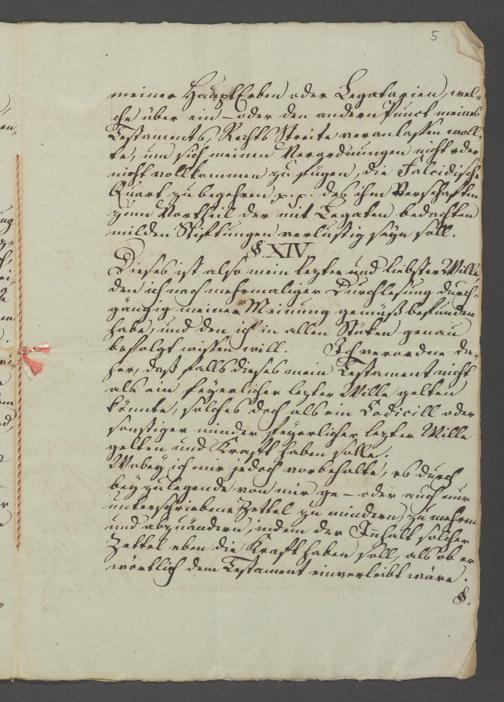 5
meiner HauptErben oder Legatarien, wel-
che über ein – oder den andern Punct meines
Testaments, Rechts Streite veranlassen woll-
te, um sich meinen Verordnungen nicht oder
nicht vollkommen zu fügen, die Falcidische
Quart zu begehren, des ihm Verschafften
zum Vortheil der mit Legaten bedachten
milden Stiftungen verlustig seyn soll.
§. XIV.
Dieses ist also mein lezter und liebster Wille,
den ich nach nochmaliger Durchlesung durch-
gängig meiner Meinung gemäß befunden
habe, und den ich in allen Stüken genau
befolgt wissen will. Ich verordne da-
her, daß falls dieses mein Testament nicht
als ein feyerlicher lezter Wille gelten
könnte, solches doch als ein Codicill oder
sonstiger minder feyerlicher lezter Wille
gelten und Krafft haben solle.
Wobey ich mir jedoch vorbehalte, es durch
beyzulegende von mir ge – oder auch nur
unterschriebene Zettel zu mindern, zu mehren
und abzuändern, indem der Inhalt solcher
Zettel eben die Krafft haben soll, als ob er
wörtlich dem Testament einverleibt wäre.
§.